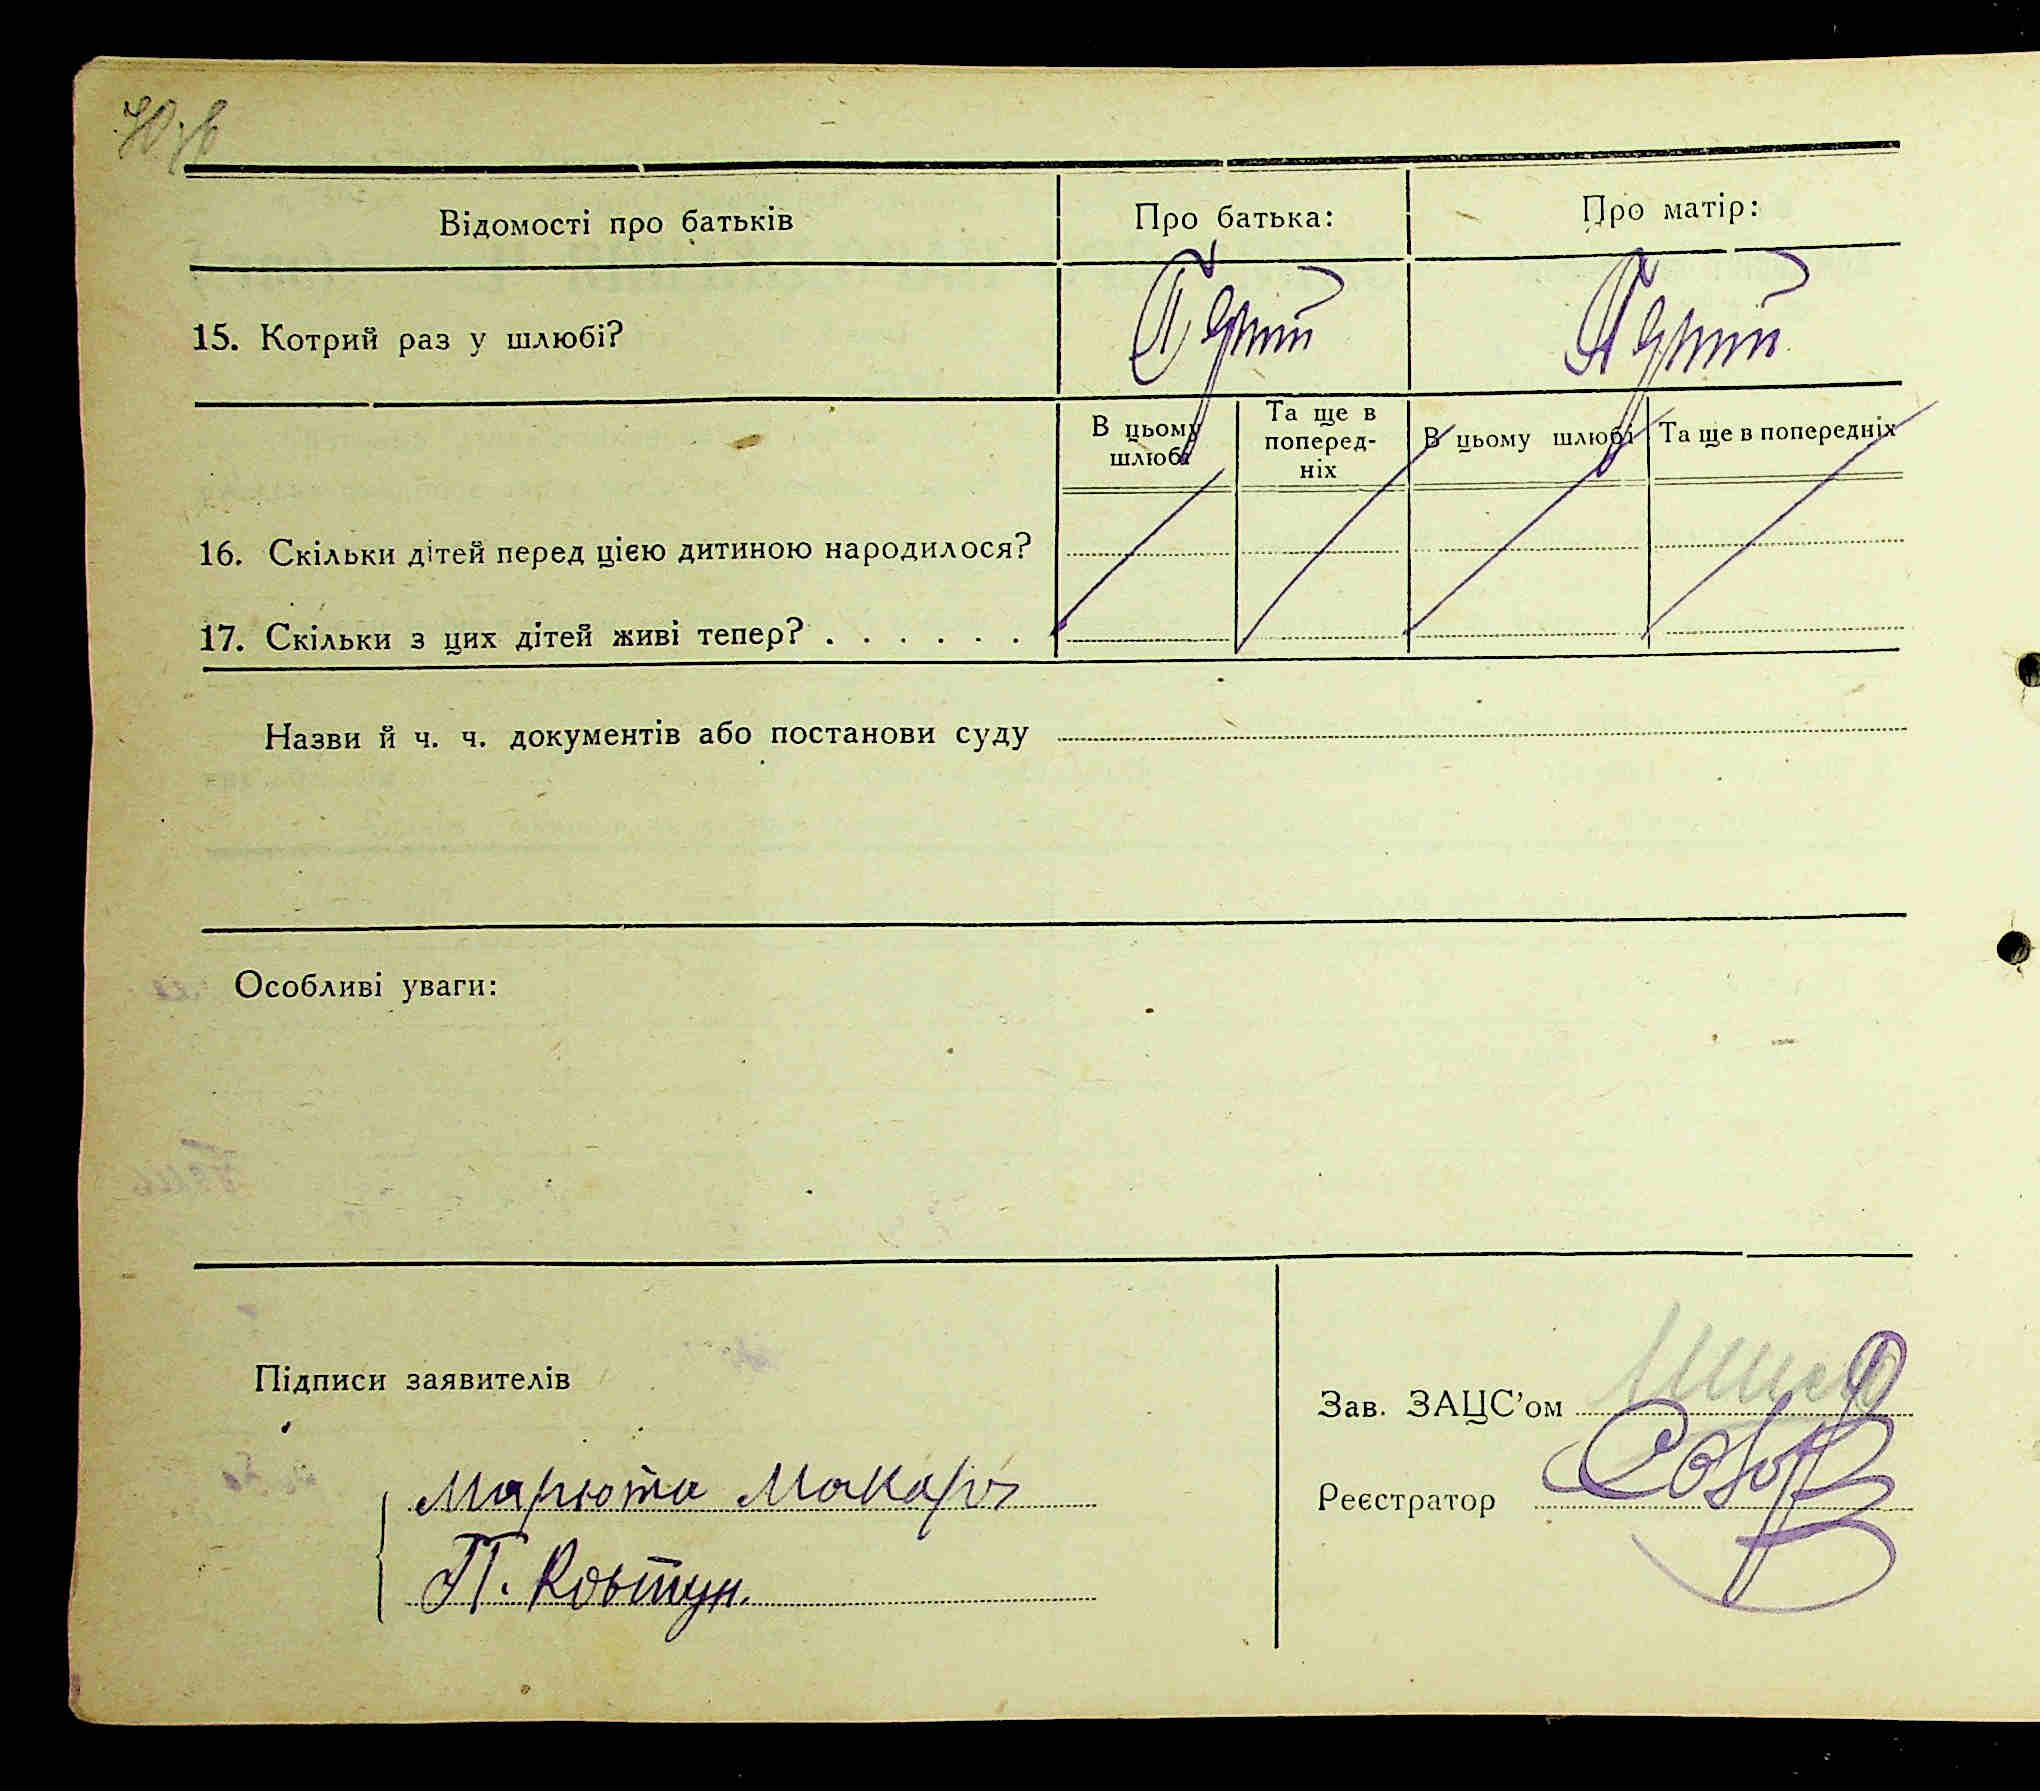 Відомості про батьків
Про батька:
Про матір:
15. Котрий раз у шлюбі?
Перший
Перший
В цьому шлюбі
Та ще в поперед-
ніх
В цьому шлюбі
Та ще в попередніх
16. Скільки дітей перед цією дитиною народилося?
17. Скільки з цих дітей живі тепер? . . . . . .
Назви й ч. ч. документів або постанови суду
Особливі уваги:
Підписи заявителів
Марюта Макар
П. Ковтун.
Зав. ЗАЦС’ом
Реєстратор